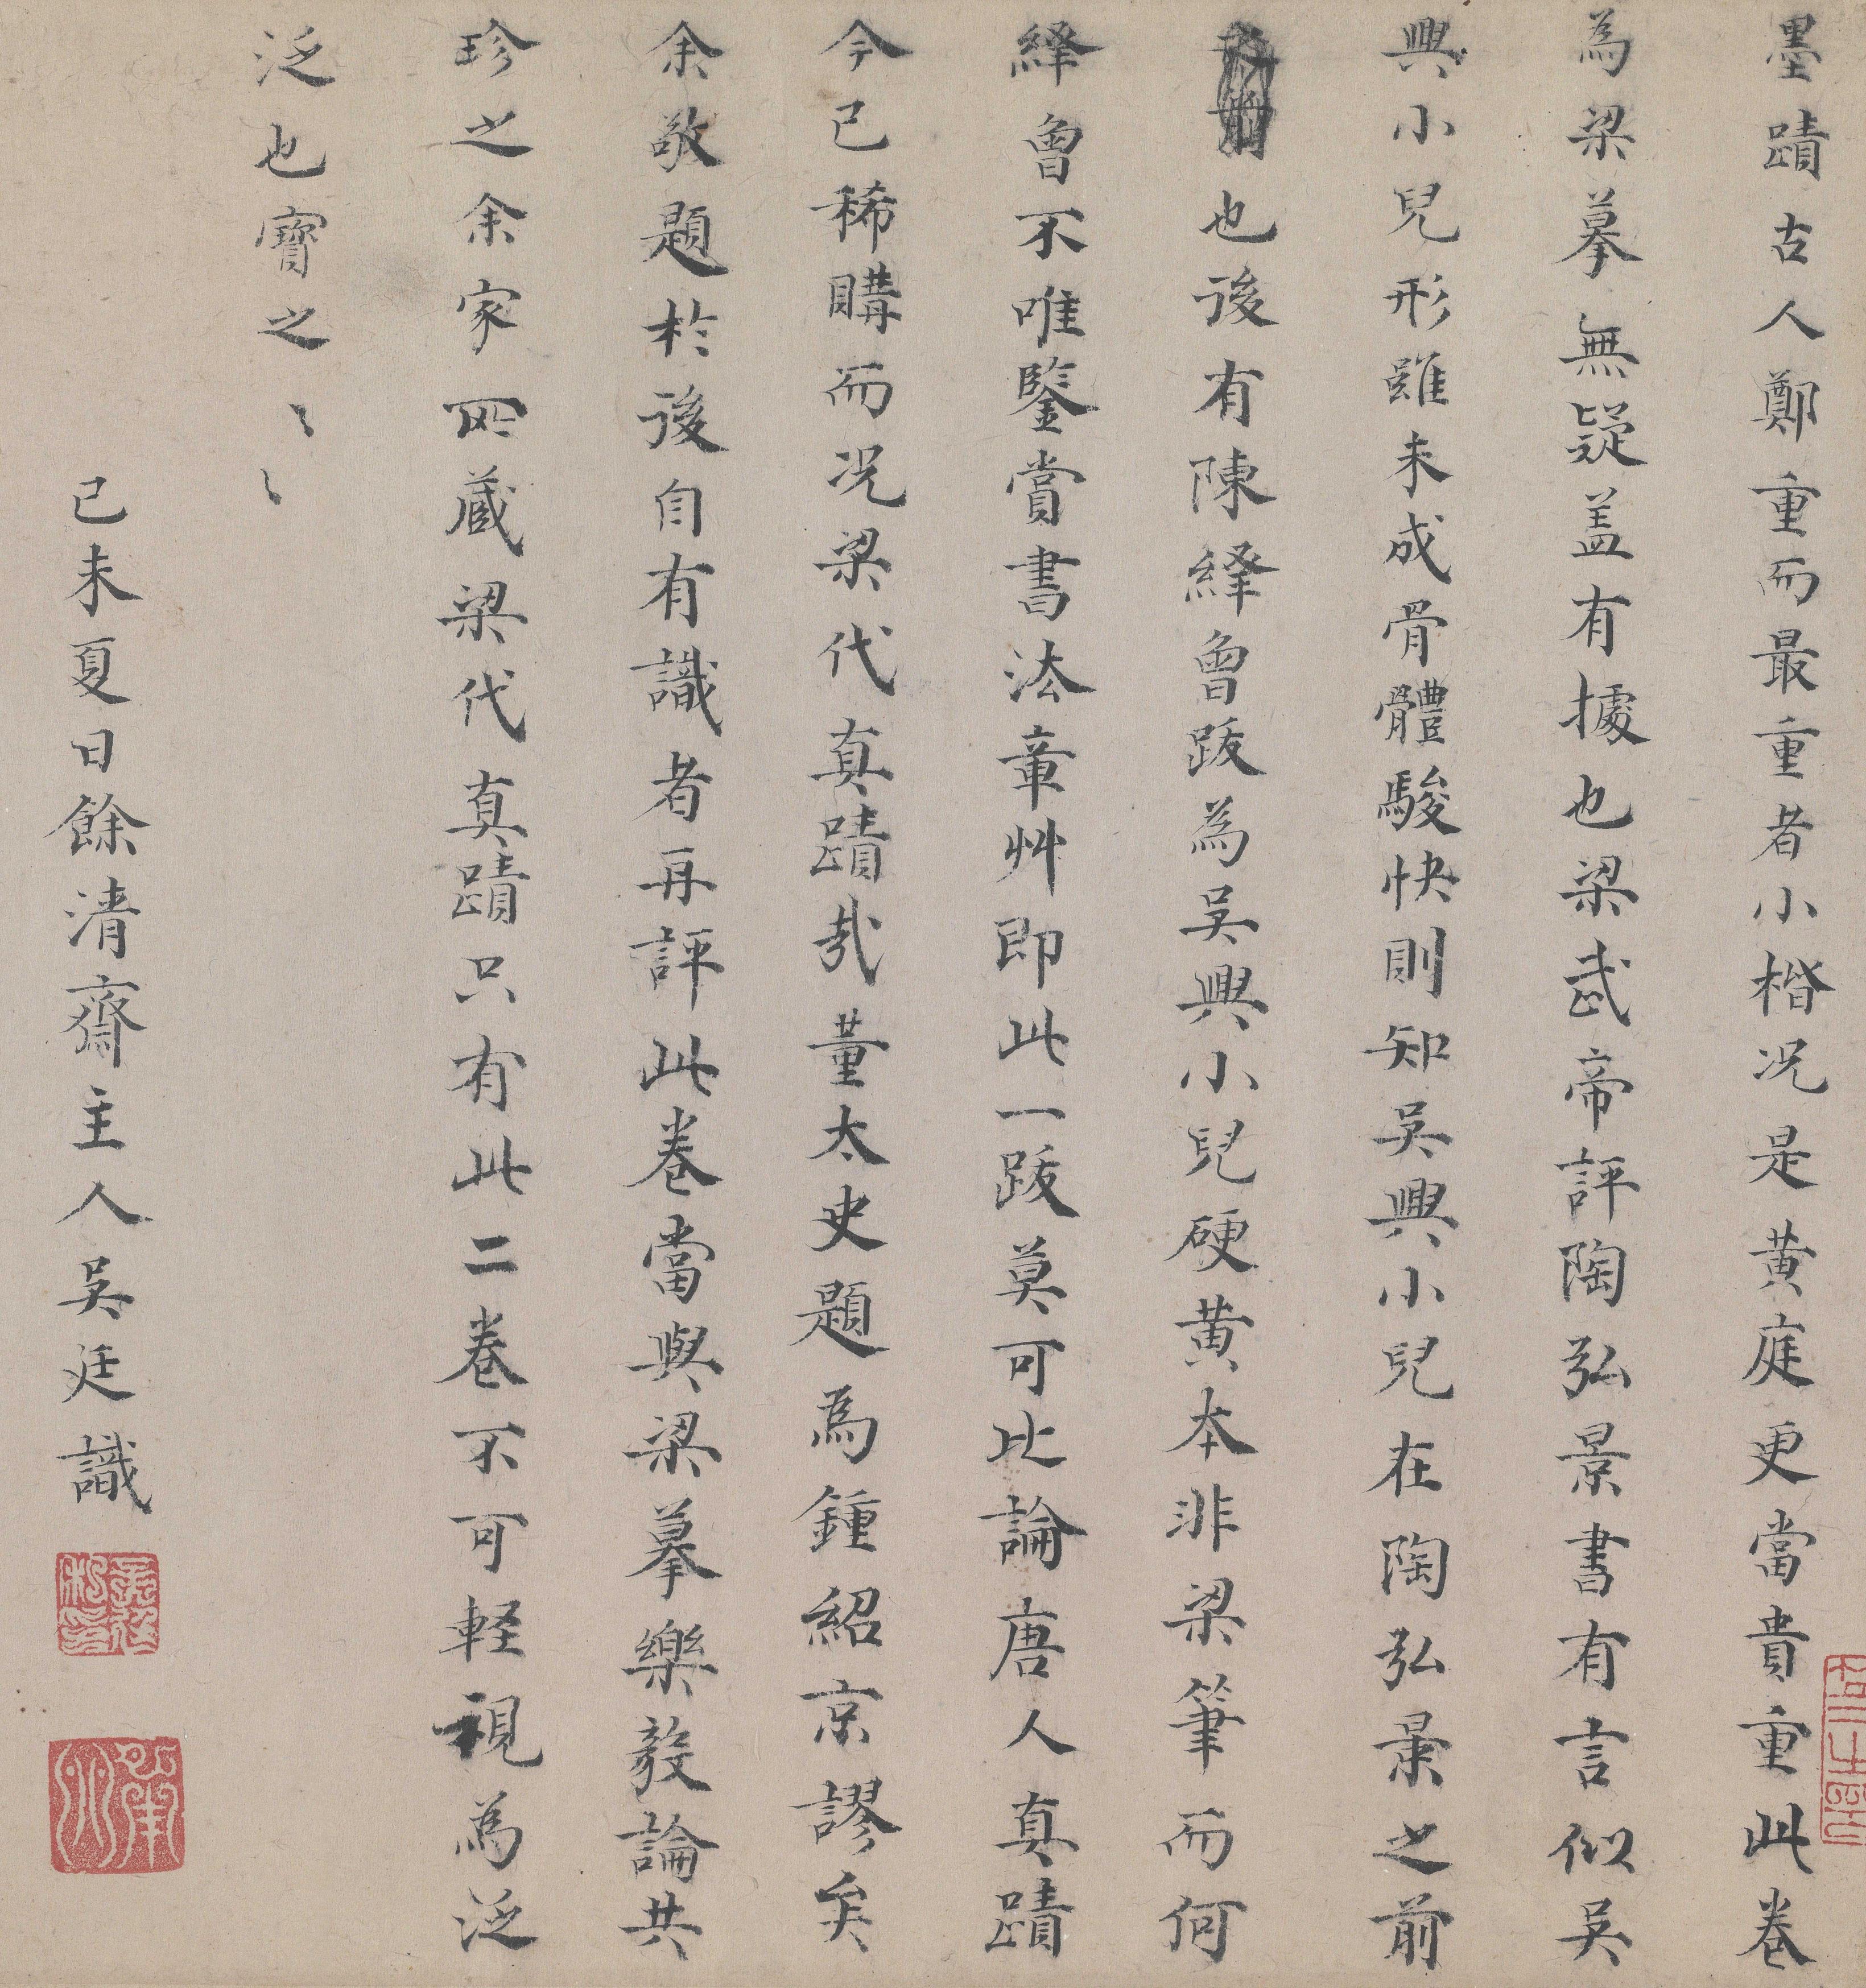 墨蹟古人鄭重而最重者小楷况是黄庭更當貴重此卷
為梁摹無疑盖有據也梁武帝評陶弘景書有言似吴
興小兒形雖未成骨體駿快則知吴興小兒在陶弘景之前
也後有陳繹曾跋為吴興小兒硬黄本非梁筆而何
繹曾不唯鑒賞書法章艸即此一跋莫可比論唐人真蹟
今已稀購而况梁代真蹟哉董太史題為鍾紹京謬矣
余敬題於後自有識者再評此卷當與梁摹樂毅論共
珍之余家四藏梁代真蹟只有此二卷不可軽視為泛
泛也寳之〻〻
己未夏日餘清齋主人吴廷識